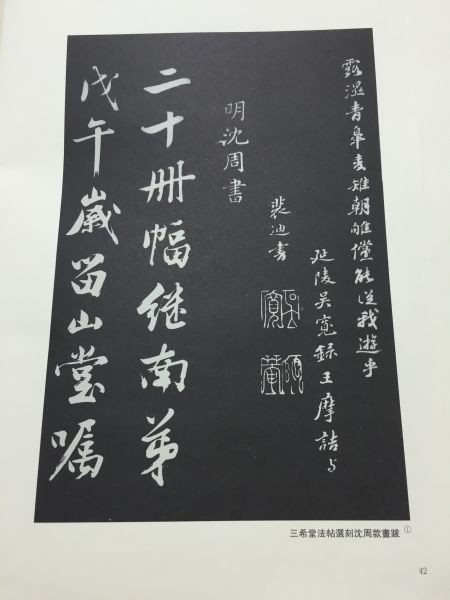 露濕青皋麦雉朝雊儻能從我遊乎
延陵吴寬錄王摩詰与
裴迪書
明沈周書
二十冊幅继南弟
戊午歲留山堂嘱
三希堂法帖選刻沈周款畫跋①
42